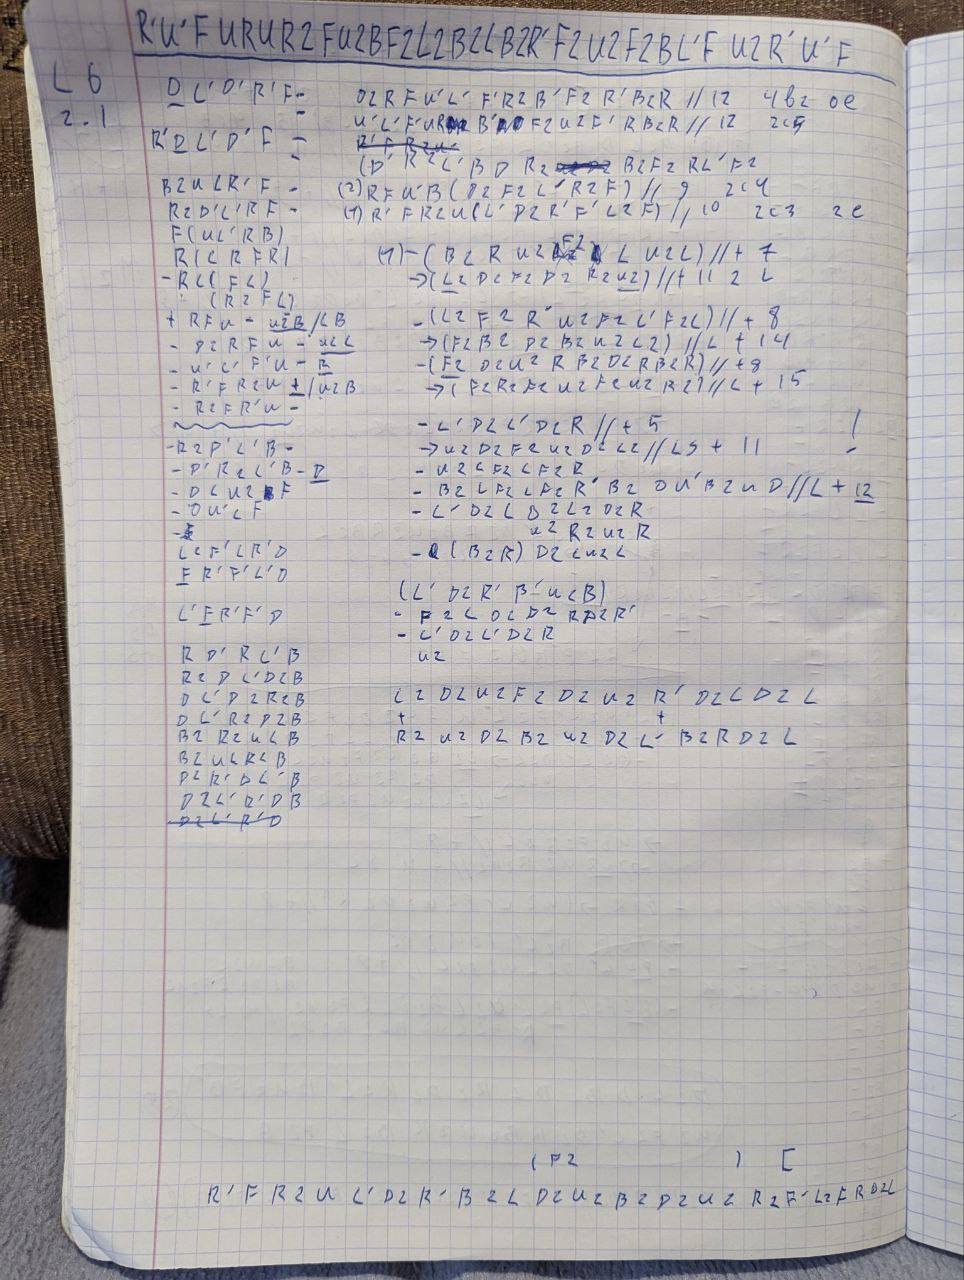 R' U' F U R U R2 F U2 B F2 L2 B2 L B2 R' F2 U2 F2 B L' F U2 R' U' F
L 6
2.1
D L' D' R' F - D2 R F U' L' F' R2 B' F2 R' B2 R // 12 4B2 0e
U' L' F' U R B' F2 U2 F' R B2 R // 12 2c5
R' D L' D' F -
R' F R2 U
(D' R2 L' B D R2 B2 F2 R L' F2
B2 U L R' F - (2) R F U' B (D2 F2 L' R2 F) // 9 2c4
R2 D' L' R F - (1) R' F R2 U (L' D2 R' F' L2 F) // 10 2c3 2e
F (U L' R B)
R (L R F R) (1) - (B2 R U2 F2 L U2 L) // + 7
- R L (F L) → (L2 D2 F2 D2 R2 U2) // + 11 2 L
(R2 F L)
+ R F U - U2B / LB - (L2 F2 R' U2 F2 L' F2 L) // + 8
- D2 R F U - U2L → (F2 B2 D2 B2 U2 L2) // L + 14
- U' L' F' U - B - (F2 D2 U2 R B2 D2 R B2 R) // + 9
- R' F R2 U ± / U2B → ( F2 R2 F2 U2 F2 U2 B2) // L + 15
- R2 F R' U -
- L' D2 L' D2 R // + 5 !
- R2 D' L' B - → U2 D2 F2 U2 D2 L2 // L5 + 11 -
- D' R2 L' B - D - U2 L F2 L F2 R
- D L U2 F - B2 L F2 L F2 R' B2 D U' B2 U D // L + 12
- D U' L F - L' D2 L D2 L2 D2 R
U2 R2 U2 R
L2 F' L R' D - (B2 R) D2 L U2 L
F R' F' L' D
(L' D2 R' B' U2 B)
L' F R' F' D - F2 L D2 D2 R D2 R'
- L' D2 L' D2 R
R D' R L' B U2
R2 D L' D2 B
D L' D2 R2 B L2 D2 U2 F2 D2 U2 R' D2 L D2 L
D L' R2 D2 B + +
B2 R2 U L B R2 U2 D2 B2 U2 D2 L' B2 R D2 L
B2 U L R L B
D2 R' D L' B
D2 L' R' D B
D2 L' R' D
( F2 ) [
R' F R2 U L' D2 R' B2 L D2 U2 B2 D2 U2 R2 F' L2 F R D2 L